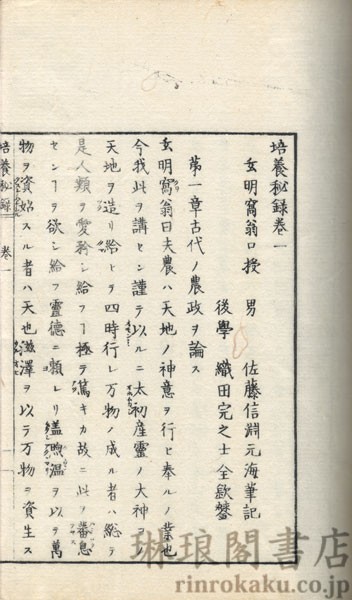 培養秘録巻一
玄明窩翁口授 男 佐藤信淵元海筆記
後學 織田完之士全歓
第一章古代ノ農政ヲ論ス
玄明窩翁曰夫農ハ天地ノ神意ヲ行ヒ奉ルノ業也
今我此ヲ講セン謹テ以ルニ太初産靈ノ大神ヨ
天地ヲ造リ給ヒヲ四時行レ万物ノ成ル者ハ総テ
是人類ヲ愛矜シ給フ極テ篤キカ故ニ此蕃息
セン欲シ給フ靈德ニ頼レリ蓋煦温ヲ以萬
物ヲ資始スル者ハ天也滋澤ヲ以テ万物ニ資生ス
培養秘録 巻一
琳琅閣書店
rinrokaku.co.jp